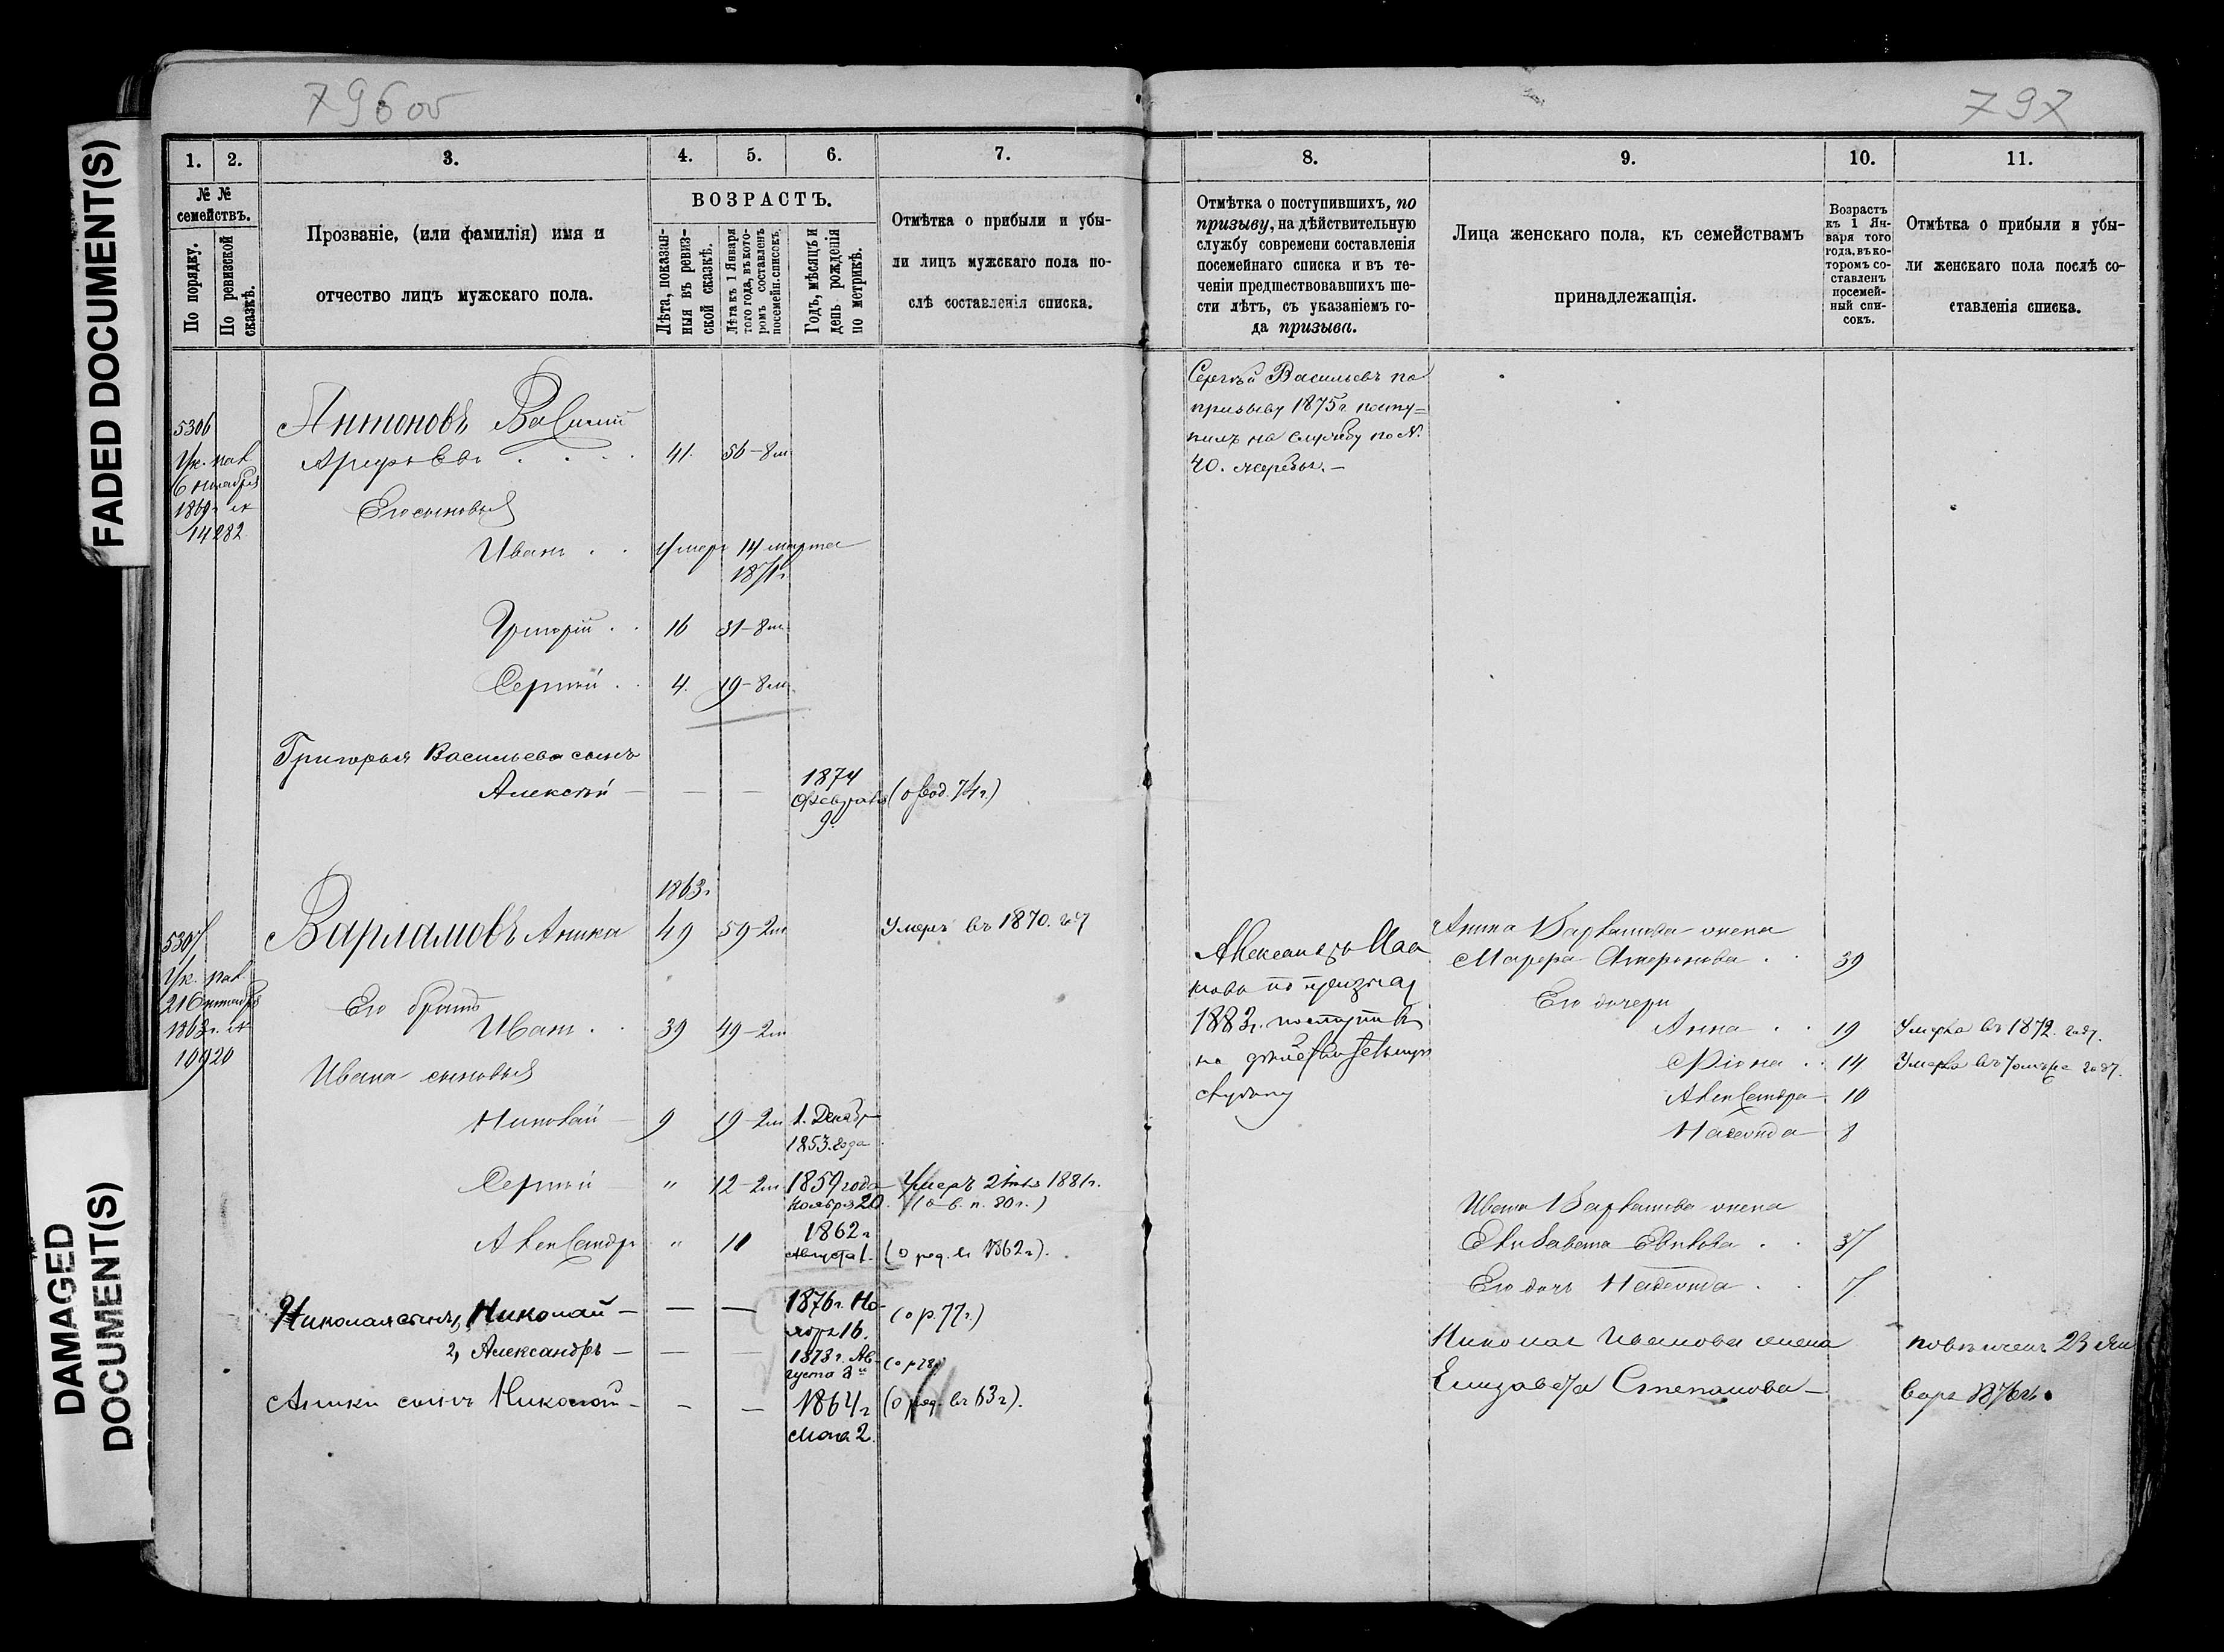 796 об
797
FADED DOCUMENT(S)
DAMAGED
DOCUMENT(S)
1.
2.
3.
4.
5.
6.
7.
№ №
семействъ.
По порядку.
По ревизской
сказкѣ.
Прозваніе, (или фамилія) имя и
отчество лицъ мужскаго пола.
ВОЗРАСТЪ.
Лѣта, показан-
ныя въ ревиз-
ской сказкѣ.
Лѣта къ 1 Января
того года, въ кото-
ромъ составленъ
посемейн. списокъ.
Годъ, мѣсяцъ и
день рожденія
по метрикѣ.
Отмѣтка о прибыли и убы-
ли лицъ мужскаго пола по-
слѣ составленія списка.
5306
Ук. пал.
6 октября
1869 г. №
14282
Антоновъ Василий
Арефьевъ
41.
56-8м
Его сыновья
Иванъ
Умеръ 14 марта
1871г
Григорій
16
31-8м
Сергѣй
4.
19-8м
Григорья Васильева сынъ
Алексѣй
1874
Февраля
9.
1863г.
5307
Ук. пал.
21 Октября
1863г. №
10920
Варламовъ Аника
49
59-2м
Умеръ въ 1870. году
Его братъ
Иванъ
39
49-2м
Ивана сыновья
Николай
9
19-2м
1. Декабр
1853. года
Сергѣй
"
12-2м
1859 года
Ноября 20.
Умеръ 1881г.
Александръ
"
11
1862г
Августа 1.
Николая сынъ 1, Николай
1876г. Но-
ября 16.
(о р. 77г.)
2, Александръ
1878г. Ав-
густа
Аники сынъ Николай
1864г
Мая 2.
въ 63г).
8.
9.
10.
11.
Отмѣтка о поступившихъ, по
призыву, на дѣйствительную
службу современи составленія
посемейнаго списка и въ те-
ченіи предшествовавшихъ ше-
сти лѣтъ, съ указаніемъ го-
да призыва.
Лица женскаго пола, къ семействамъ
принадлежащія.
Возрастъ
къ 1 Ян-
варя того
года, въ ко-
торомъ со-
ставленъ
посемей-
ный спи-
сокъ.
Отмѣтка о прибыли и убы-
ли женскаго пола послѣ со-
ставленія списка.
Сергѣй Васильевъ по
призыву 1875г посту=
пилъ на службу по №
40. жеребью.
Александръ Ива
новъ по призыву
1883г. поступилъ
на дѣйствительную
службу
Аники Варламова жена
Марфа
39
Его дочери
Анна
19
Умерла въ 1872. году.
14
Умерла въ году.
Александра
10
Надежда
8
Ивана Варламова жена
Елизавета
37
Его дочь Надежда
7
Николая Иванова жена
Елизавета Степанова
повѣнчанъ 23 Ян
варя 1876г.